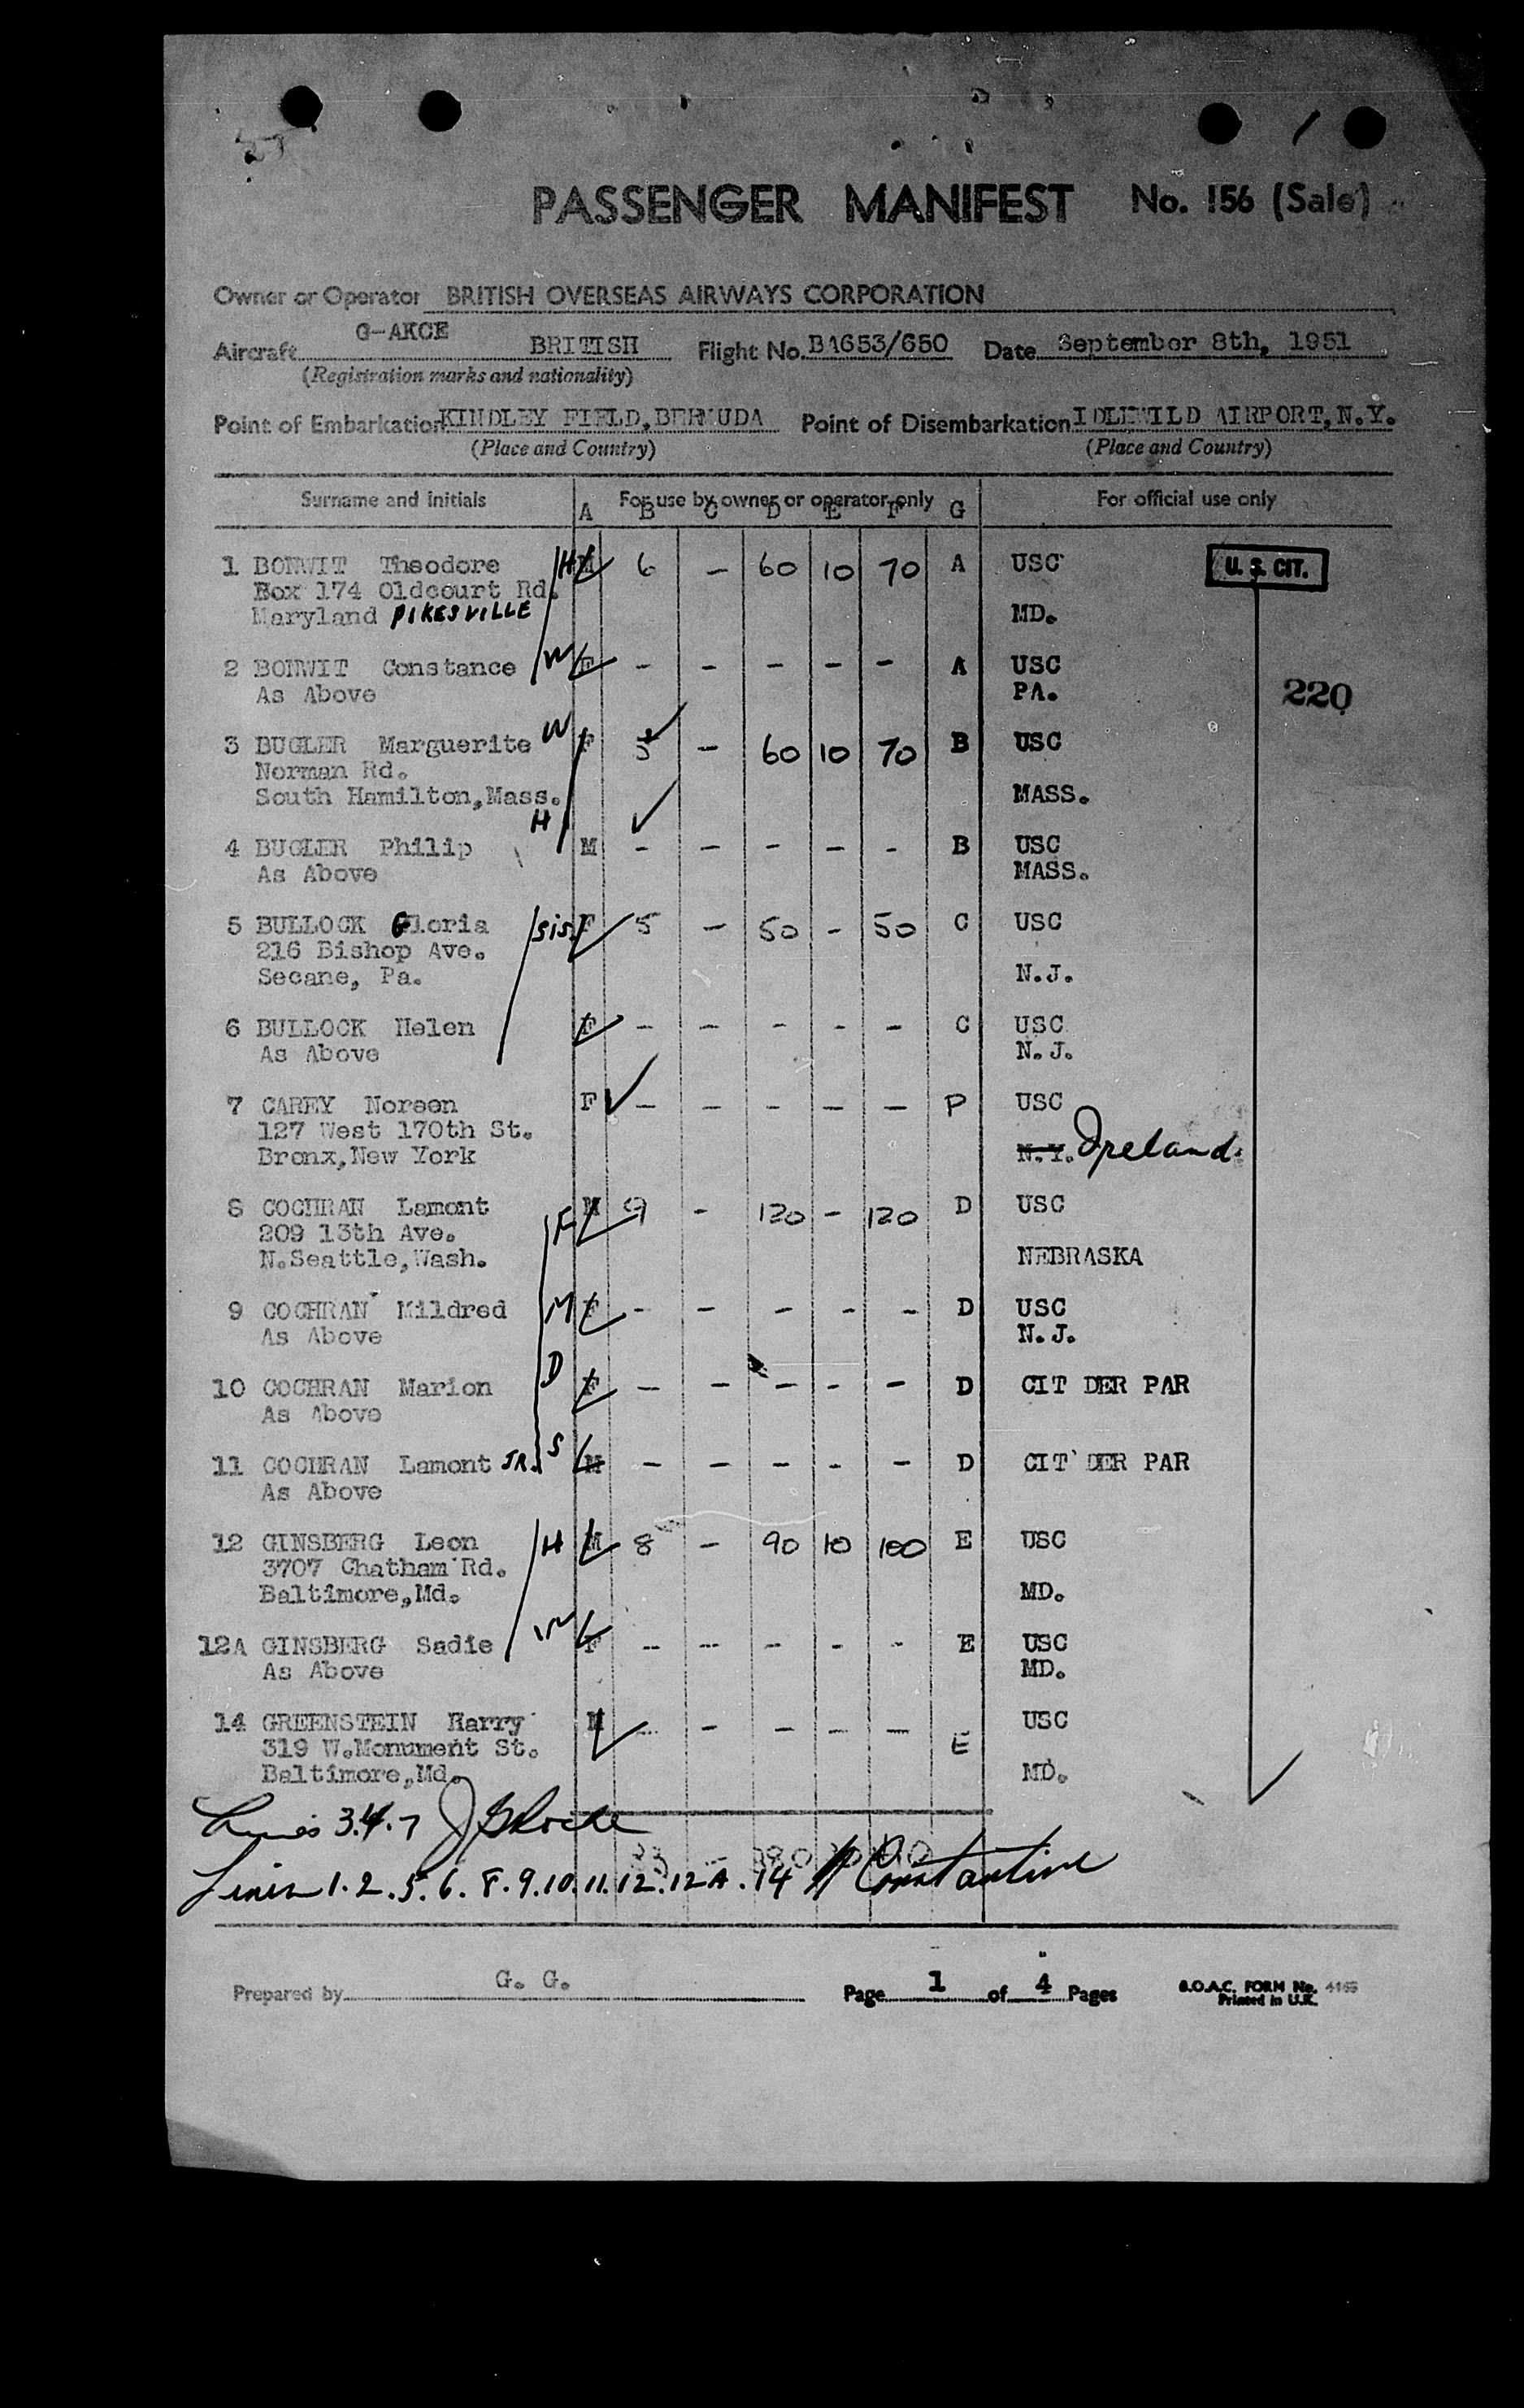 PASSENGER MANIFEST No. 156 (Sale)
Owner or Operator BRITISH OVERSEAS AIRWAYS CORPORATION
Aircraft G-AKCE BRITISH Flight No. BA653/650 Date September 8th, 1951
(Registration marks and nationality)
Point of Embarkation KINDLEY FIELD, BERMUDA Point of Disembarkation IDLEWILD AIRPORT, N.Y.
(Place and Country) (Place and Country)
Surname and initials For use by owner or operator only For official use only
A B C D E F G
1 BONWIT Theodore H M 6 - 60 10 70 A USC U. S. CIT.
Box 174 Oldcourt Rd.
Maryland PIKESVILLE MD.
2 BONWIT Constance W F - - - - - A USC
As Above PA. 220
3 BUGLER Marguerite W F 5 - 60 10 70 B USC
Norman Rd.
South Hamilton, Mass. MASS.
H
4 BUGLER Philip M - - - - - B USC
As Above MASS.
5 BULLOCK Gloria sis. F 5 - 50 - 50 C USC
216 Bishop Ave.
Secane, Pa. N.J.
6 BULLOCK Helen F - - - - - C USC
As Above N.J.
7 CAREY Noreen F - - - - - P USC
127 West 170th St.
Bronx, New York N.Y. Ireland.
8 COCHRAN Lamont F M 9 - 120 - 120 D USC
209 13th Ave.
N. Seattle, Wash. NEBRASKA
9 COCHRAN Mildred M F - - - - - D USC
As Above N.J.
10 COCHRAN Marion D F - - - - - D CIT DER PAR
As Above
11 COCHRAN Lamont JR. S M - - - - - D CIT DER PAR
As Above
12 GINSBERG Leon H M 8 - 90 10 100 E USC
3707 Chatham Rd.
Baltimore, Md. MD.
12A GINSBERG Sadie W F - - - - - E USC
As Above MD.
14 GREENSTEIN Harry M - - - - - E USC
319 W. Monument St.
Baltimore, Md. MD.
Lines 3.4.7
Lines 1.2.5.6.8.9.10.11.12.12A.14 Constantine
Prepared by G. G. Page 1 of 4 Pages B.O.A.C. FORM No. 4165
Printed in U.K.